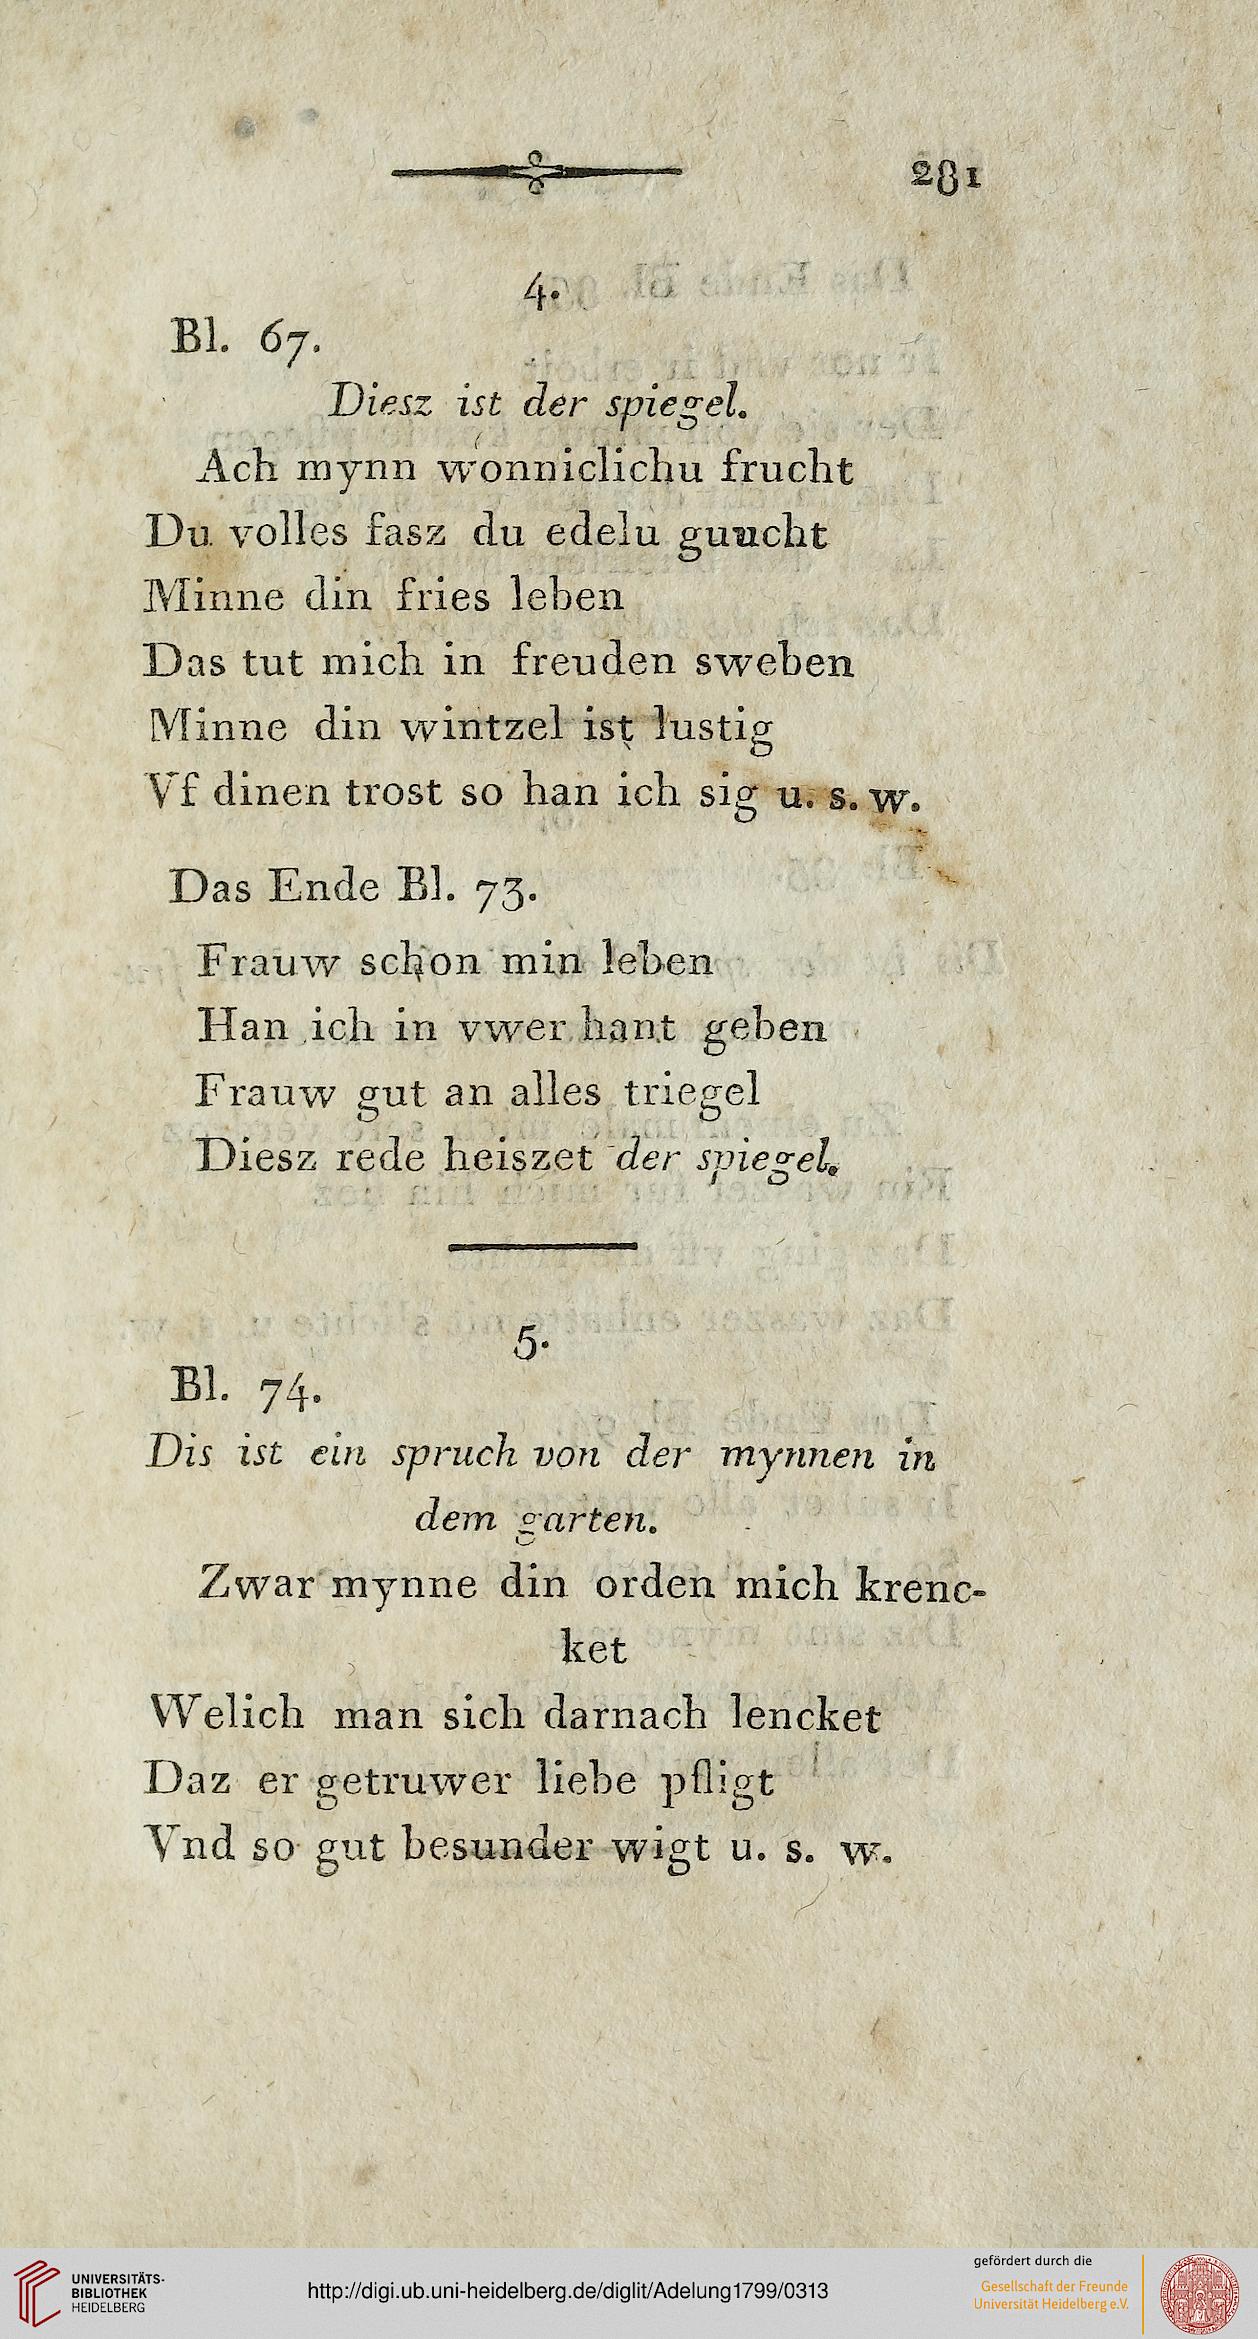 281
4.
Bl. 67.
Diesz ist der spiegel.
Ach mynn wonniclichu frucht
Du volles fasz du edelu guucht
Minne din fries leben
Das tut mich in freuden sweben
Minne din wintzel ist lustig
Vf dinen trost so han ich sig u. s. w.
Das Ende Bl. 73.
Frauw schon min leben
Han ich in vwer hant geben
Frauw gut an alles triegel
Diesz rede heiszet der spiegel.
5.
Bl. 74.
Dis ist ein spruch von der mynnen in
dem garten.
Zwar mynne din orden mich krenc-
ket
Welich man sich darnach lencket
Daz er getruwer liebe pfligt
Vnd so gut besunder wigt u. s. w.
UNIVERSITÄTS-
BIBLIOTHEK
HEIDELBERG
http://digi.ub.uni-heidelberg.de/diglit/Adelung1799/0313
gefördert durch die
Gesellschaft der Freunde
Universität Heidelberg e.V.